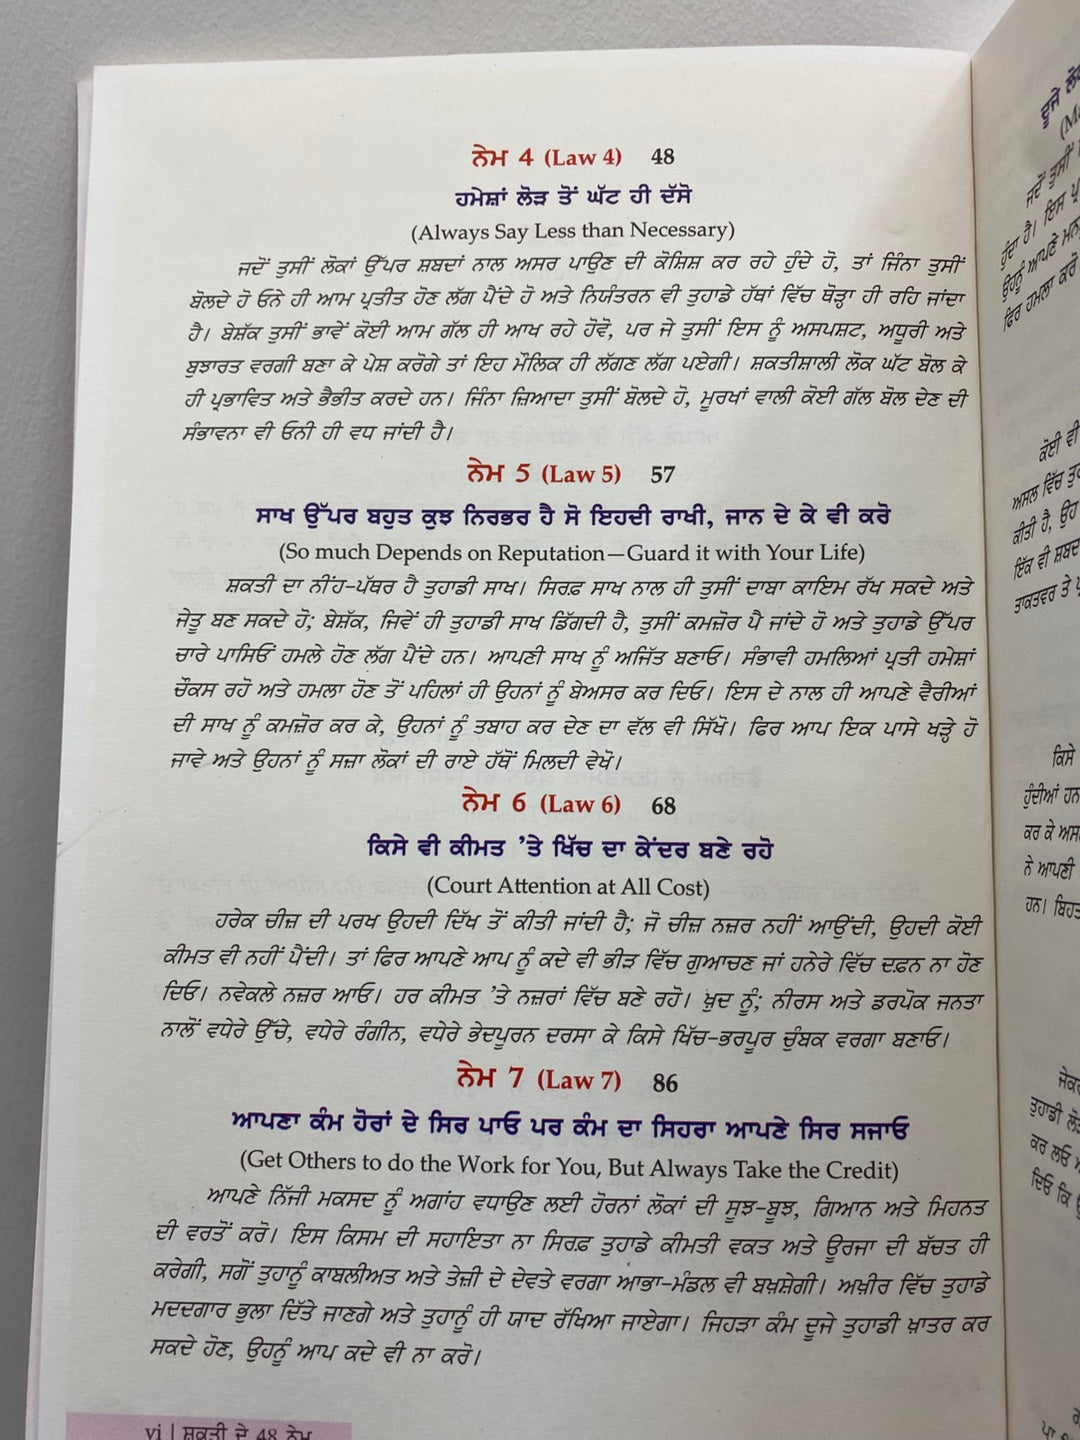 ਨੇਮ 4 (Law 4) 48
ਹਮੇਸ਼ਾਂ ਲੋੜ ਤੋਂ ਘੱਟ ਹੀ ਦੱਸੋ
(Always Say Less than Necessary)
ਜਦੋਂ ਤੁਸੀਂ ਲੋਕਾਂ ਉੱਪਰ ਸ਼ਬਦਾਂ ਨਾਲ ਅਸਰ ਪਾਉਣ ਦੀ ਕੋਸ਼ਿਸ਼ ਕਰ ਰਹੇ ਹੁੰਦੇ ਹੋ, ਤਾਂ ਜਿੰਨਾ ਤੁਸੀਂ
ਬੋਲਦੇ ਹੋ ਓਨੇ ਹੀ ਆਮ ਪ੍ਰਤੀਤ ਹੋਣ ਲੱਗ ਪੈਂਦੇ ਹੋ ਅਤੇ ਨਿਯੰਤਰਨ ਵੀ ਤੁਹਾਡੇ ਹੱਥਾਂ ਵਿੱਚ ਥੋੜ੍ਹਾ ਹੀ ਰਹਿ ਜਾਂਦਾ
ਹੈ। ਬੇਸ਼ੱਕ ਤੁਸੀਂ ਭਾਵੇਂ ਕੋਈ ਆਮ ਗੱਲ ਹੀ ਆਖ ਰਹੇ ਹੋਵੋ, ਪਰ ਜੇ ਤੁਸੀਂ ਇਸ ਨੂੰ ਅਸਪਸ਼ਟ, ਅਧੂਰੀ ਅਤੇ
ਬੁਝਾਰਤ ਵਰਗੀ ਬਣਾ ਕੇ ਪੇਸ਼ ਕਰੋਗੇ ਤਾਂ ਇਹ ਮੌਲਿਕ ਹੀ ਲੱਗਣ ਲੱਗ ਪਏਗੀ। ਸ਼ਕਤੀਸ਼ਾਲੀ ਲੋਕ ਘੱਟ ਬੋਲ ਕੇ
ਹੀ ਪ੍ਰਭਾਵਿਤ ਅਤੇ ਭੈਭੀਤ ਕਰਦੇ ਹਨ। ਜਿੰਨਾ ਜ਼ਿਆਦਾ ਤੁਸੀਂ ਬੋਲਦੇ ਹੋ, ਮੂਰਖਾਂ ਵਾਲੀ ਕੋਈ ਗੱਲ ਬੋਲ ਦੇਣ ਦੀ
ਸੰਭਾਵਨਾ ਵੀ ਓਨੀ ਹੀ ਵਧ ਜਾਂਦੀ ਹੈ।
ਨੇਮ 5 (Law 5) 57
ਸਾਖ ਉੱਪਰ ਬਹੁਤ ਕੁਝ ਨਿਰਭਰ ਹੈ ਸੋ ਇਹਦੀ ਰਾਖੀ, ਜਾਨ ਦੇ ਕੇ ਵੀ ਕਰੋ
(So much Depends on Reputation—Guard it with Your Life)
ਸ਼ਕਤੀ ਦਾ ਨੀਂਹ-ਪੱਥਰ ਹੈ ਤੁਹਾਡੀ ਸਾਖ। ਸਿਰਫ਼ ਸਾਖ ਨਾਲ ਹੀ ਤੁਸੀਂ ਦਾਬਾ ਕਾਇਮ ਰੱਖ ਸਕਦੇ ਅਤੇ
ਜੇਤੂ ਬਣ ਸਕਦੇ ਹੋ; ਬੇਸ਼ੱਕ, ਜਿਵੇਂ ਹੀ ਤੁਹਾਡੀ ਸਾਖ ਡਿੱਗਦੀ ਹੈ, ਤੁਸੀਂ ਕਮਜ਼ੋਰ ਪੈ ਜਾਂਦੇ ਹੋ ਅਤੇ ਤੁਹਾਡੇ ਉੱਪਰ
ਚਾਰੇ ਪਾਸਿਓਂ ਹਮਲੇ ਹੋਣ ਲੱਗ ਪੈਂਦੇ ਹਨ। ਆਪਣੀ ਸਾਖ ਨੂੰ ਅਜਿੱਤ ਬਣਾਓ। ਸੰਭਾਵੀ ਹਮਲਿਆਂ ਪ੍ਰਤੀ ਹਮੇਸ਼ਾਂ
ਚੌਕਸ ਰਹੋ ਅਤੇ ਹਮਲਾ ਹੋਣ ਤੋਂ ਪਹਿਲਾਂ ਹੀ ਉਹਨਾਂ ਨੂੰ ਬੇਅਸਰ ਕਰ ਦਿਓ। ਇਸ ਦੇ ਨਾਲ ਹੀ ਆਪਣੇ ਵੈਰੀਆਂ
ਦੀ ਸਾਖ ਨੂੰ ਕਮਜ਼ੋਰ ਕਰ ਕੇ, ਉਹਨਾਂ ਨੂੰ ਤਬਾਹ ਕਰ ਦੇਣ ਦਾ ਵੱਲ ਵੀ ਸਿੱਖੋ। ਫਿਰ ਆਪ ਇਕ ਪਾਸੇ ਖੜ੍ਹੇ ਹੋ
ਜਾਵੇ ਅਤੇ ਉਹਨਾਂ ਨੂੰ ਸਜ਼ਾ ਲੋਕਾਂ ਦੀ ਰਾਏ ਹੱਥੋਂ ਮਿਲਦੀ ਵੇਖੋ।
ਨੇਮ 6 (Law 6) 68
ਕਿਸੇ ਵੀ ਕੀਮਤ ’ਤੇ ਖਿੱਚ ਦਾ ਕੇਂਦਰ ਬਣੇ ਰਹੋ
(Court Attention at All Cost)
ਹਰੇਕ ਚੀਜ਼ ਦੀ ਪਰਖ ਉਹਦੀ ਦਿੱਖ ਤੋਂ ਕੀਤੀ ਜਾਂਦੀ ਹੈ; ਜੋ ਚੀਜ਼ ਨਜ਼ਰ ਨਹੀਂ ਆਉਂਦੀ, ਉਹਦੀ ਕੋਈ
ਕੀਮਤ ਵੀ ਨਹੀਂ ਪੈਂਦੀ। ਤਾਂ ਫਿਰ ਆਪਣੇ ਆਪ ਨੂੰ ਕਦੇ ਵੀ ਭੀੜ ਵਿੱਚ ਗੁਆਚਣ ਜਾਂ ਹਨੇਰੇ ਵਿੱਚ ਦਫ਼ਨ ਨਾ ਹੋਣ
ਦਿਓ। ਨਵੇਕਲੇ ਨਜ਼ਰ ਆਓ। ਹਰ ਕੀਮਤ ’ਤੇ ਨਜ਼ਰਾਂ ਵਿੱਚ ਬਣੇ ਰਹੋ। ਖ਼ੁਦ ਨੂੰ; ਨੀਰਸ ਅਤੇ ਡਰਪੋਕ ਜਨਤਾ
ਨਾਲੋਂ ਵਧੇਰੇ ਉੱਚੇ, ਵਧੇਰੇ ਰੰਗੀਨ, ਵਧੇਰੇ ਭੇਦਪੂਰਨ ਦਰਸਾ ਕੇ ਕਿਸੇ ਖਿੱਚ-ਭਰਪੂਰ ਚੁੰਬਕ ਵਰਗਾ ਬਣਾਓ।
ਨੇਮ 7 (Law 7) 86
ਆਪਣਾ ਕੰਮ ਹੋਰਾਂ ਦੇ ਸਿਰ ਪਾਓ ਪਰ ਕੰਮ ਦਾ ਸਿਹਰਾ ਆਪਣੇ ਸਿਰ ਸਜਾਓ
(Get Others to do the Work for You, But Always Take the Credit)
ਆਪਣੇ ਨਿੱਜੀ ਮਕਸਦ ਨੂੰ ਅਗਾਂਹ ਵਧਾਉਣ ਲਈ ਹੋਰਨਾਂ ਲੋਕਾਂ ਦੀ ਸੂਝ-ਬੂਝ, ਗਿਆਨ ਅਤੇ ਮਿਹਨਤ
ਦੀ ਵਰਤੋਂ ਕਰੋ। ਇਸ ਕਿਸਮ ਦੀ ਸਹਾਇਤਾ ਨਾ ਸਿਰਫ਼ ਤੁਹਾਡੇ ਕੀਮਤੀ ਵਕਤ ਅਤੇ ਊਰਜਾ ਦੀ ਬੱਚਤ ਹੀ
ਕਰੇਗੀ, ਸਗੋਂ ਤੁਹਾਨੂੰ ਕਾਬਲੀਅਤ ਅਤੇ ਤੇਜ਼ੀ ਦੇ ਦੇਵਤੇ ਵਰਗਾ ਆਭਾ-ਮੰਡਲ ਵੀ ਬਖ਼ਸ਼ੇਗੀ। ਅਖ਼ੀਰ ਵਿੱਚ ਤੁਹਾਡੇ
ਮਦਦਗਾਰ ਭੁਲਾ ਦਿੱਤੇ ਜਾਣਗੇ ਅਤੇ ਤੁਹਾਨੂੰ ਹੀ ਯਾਦ ਰੱਖਿਆ ਜਾਏਗਾ। ਜਿਹੜਾ ਕੰਮ ਦੂਜੇ ਤੁਹਾਡੀ ਖ਼ਾਤਰ ਕਰ
ਸਕਦੇ ਹੋਣ, ਉਹਨੂੰ ਆਪ ਕਦੇ ਵੀ ਨਾ ਕਰੋ।
vi | ਸ਼ਕਤੀ ਦੇ 48 ਨੇਮ
ਦੂਜੇ
ਜਦੋਂ ਤੁਸੀਂ
ਹੁੰਦਾ ਹੈ। ਇਸ
ਉਹਨੂੰ ਆਪਣੇ
ਫਿਰ ਹਮਲਾ ਕਰੋ
ਕੋਈ ਵੀ
ਅਸਲ ਵਿੱਚ
ਕੀਤੀ ਹੈ, ਉਹ
ਇੱਕ ਵੀ ਸ਼ਬਦ
ਤਾਕਤਵਰ ਤੇ
ਕਿਸੇ
ਹੁੰਦੀਆਂ ਹਨ
ਕਰ ਕੇ
ਨੇ ਆਪਣੀ
ਹਨ।
ਤੁਹਾਡੀ
ਕਰ ਲਓ
ਦਿਓ ਕਿ